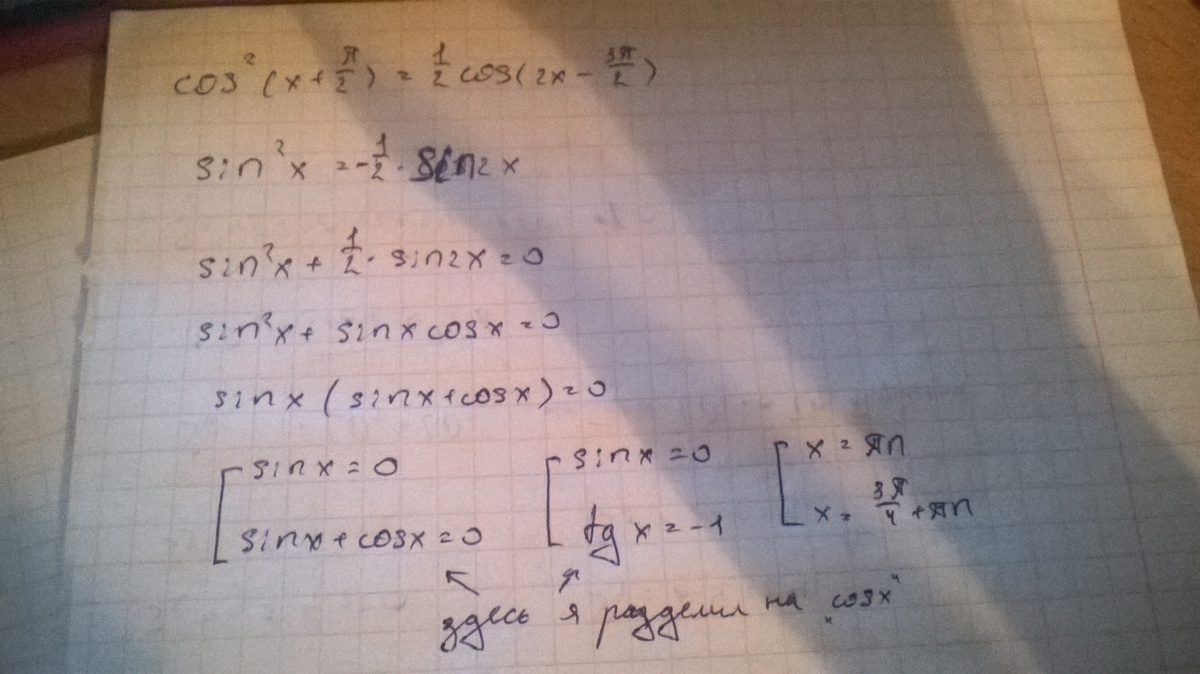 cos²(x + π/2) = 1/2 cos(2x - 3π/2)
sin²x = -1/2 · sin2x
sin²x + 1/2 · sin2x = 0
sin²x + sinx cosx = 0
sinx (sinx + cosx) = 0
[ sinx = 0 [ sinx = 0 [ x = πn
sinx + cosx = 0 tg x = -1 x = 3π/4 + πn
здесь я разделил на „cosx"